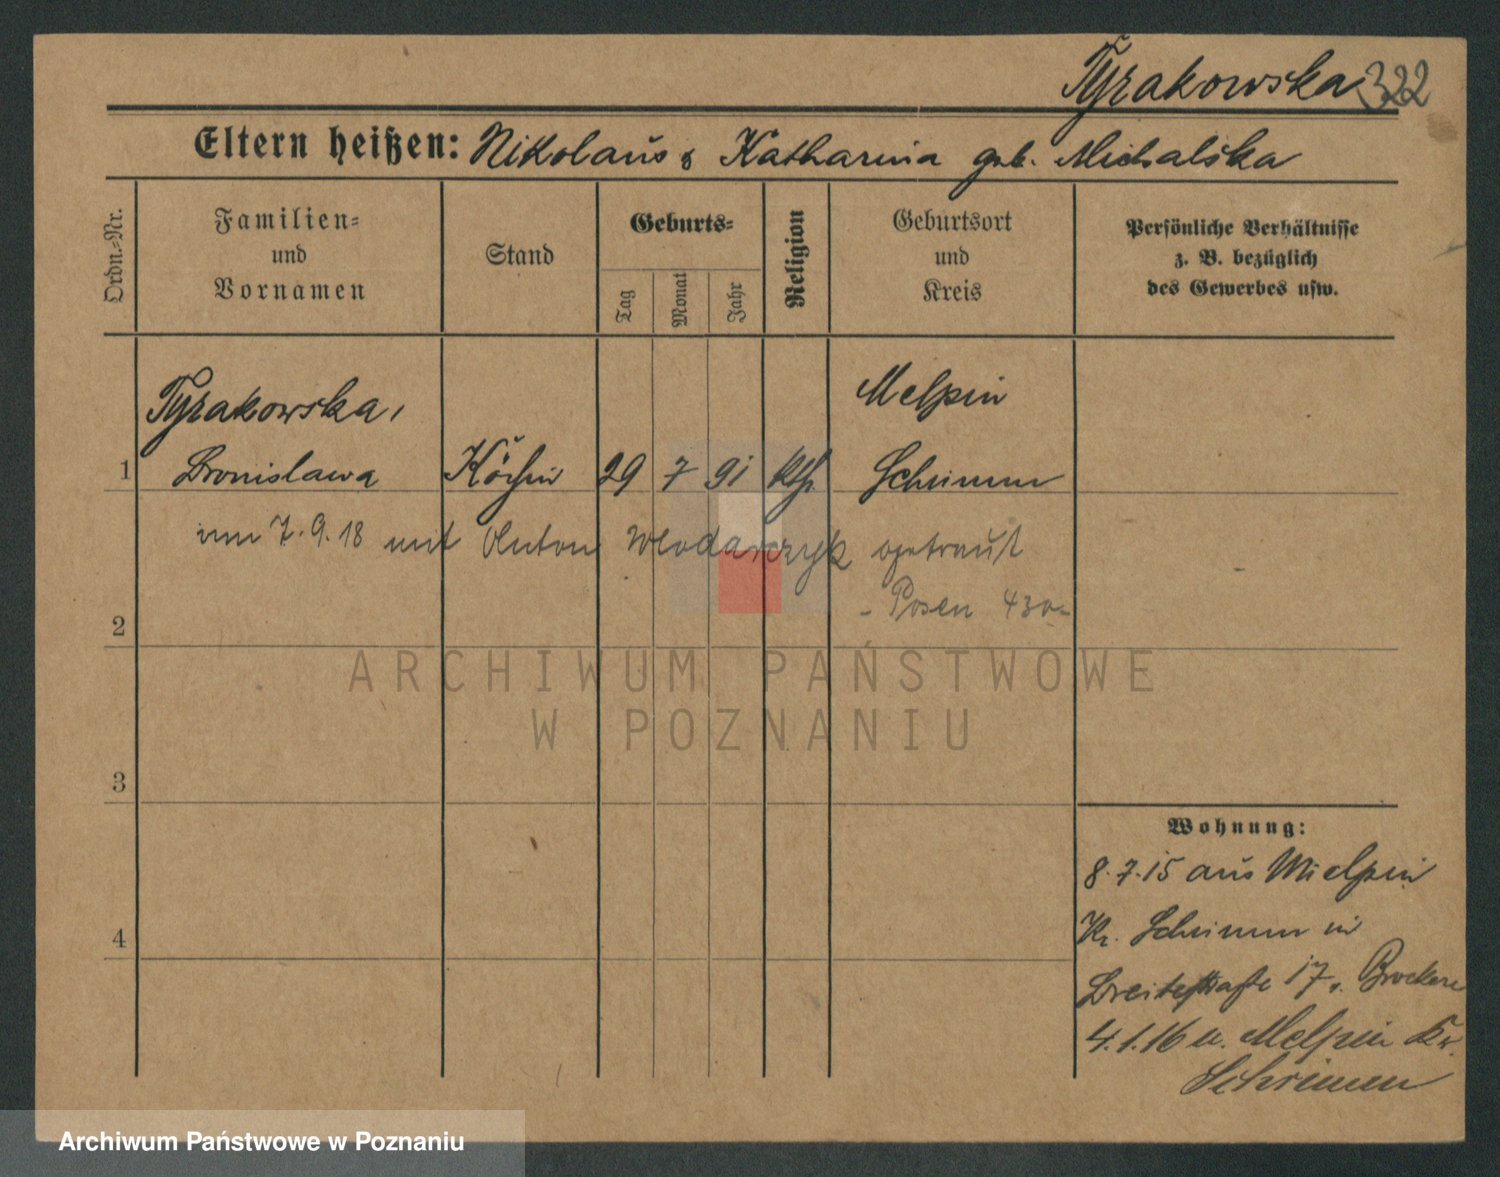 Tyrakowska 322
Eltern heißen: Nikolaus & Katharina geb. Michalska
Ordn.-Nr.
Familien-
und
Vornamen
Stand
Geburts-
Tag
Monat
Jahr
Religion
Geburtsort
und
Kreis
Persönliche Verhältnisse
z. B. bezüglich
des Gewerbes usw.
Tyrakowska,
Melpin
1 Bronislawa Köchin 29 7 91 kth. Schrimm
7.9.18 mit Anton Wlodarczyk getraut
- Posen 430-
2
3
4
Wohnung:
8.7.15 aus Mielpin
Kr. Schrimm in
Breitestraße 17,
4.1.16 n. Melpin Kr.
Schrimm
ARCHIWUM PAŃSTWOWE
W POZNANIU
Archiwum Państwowe w Poznaniu